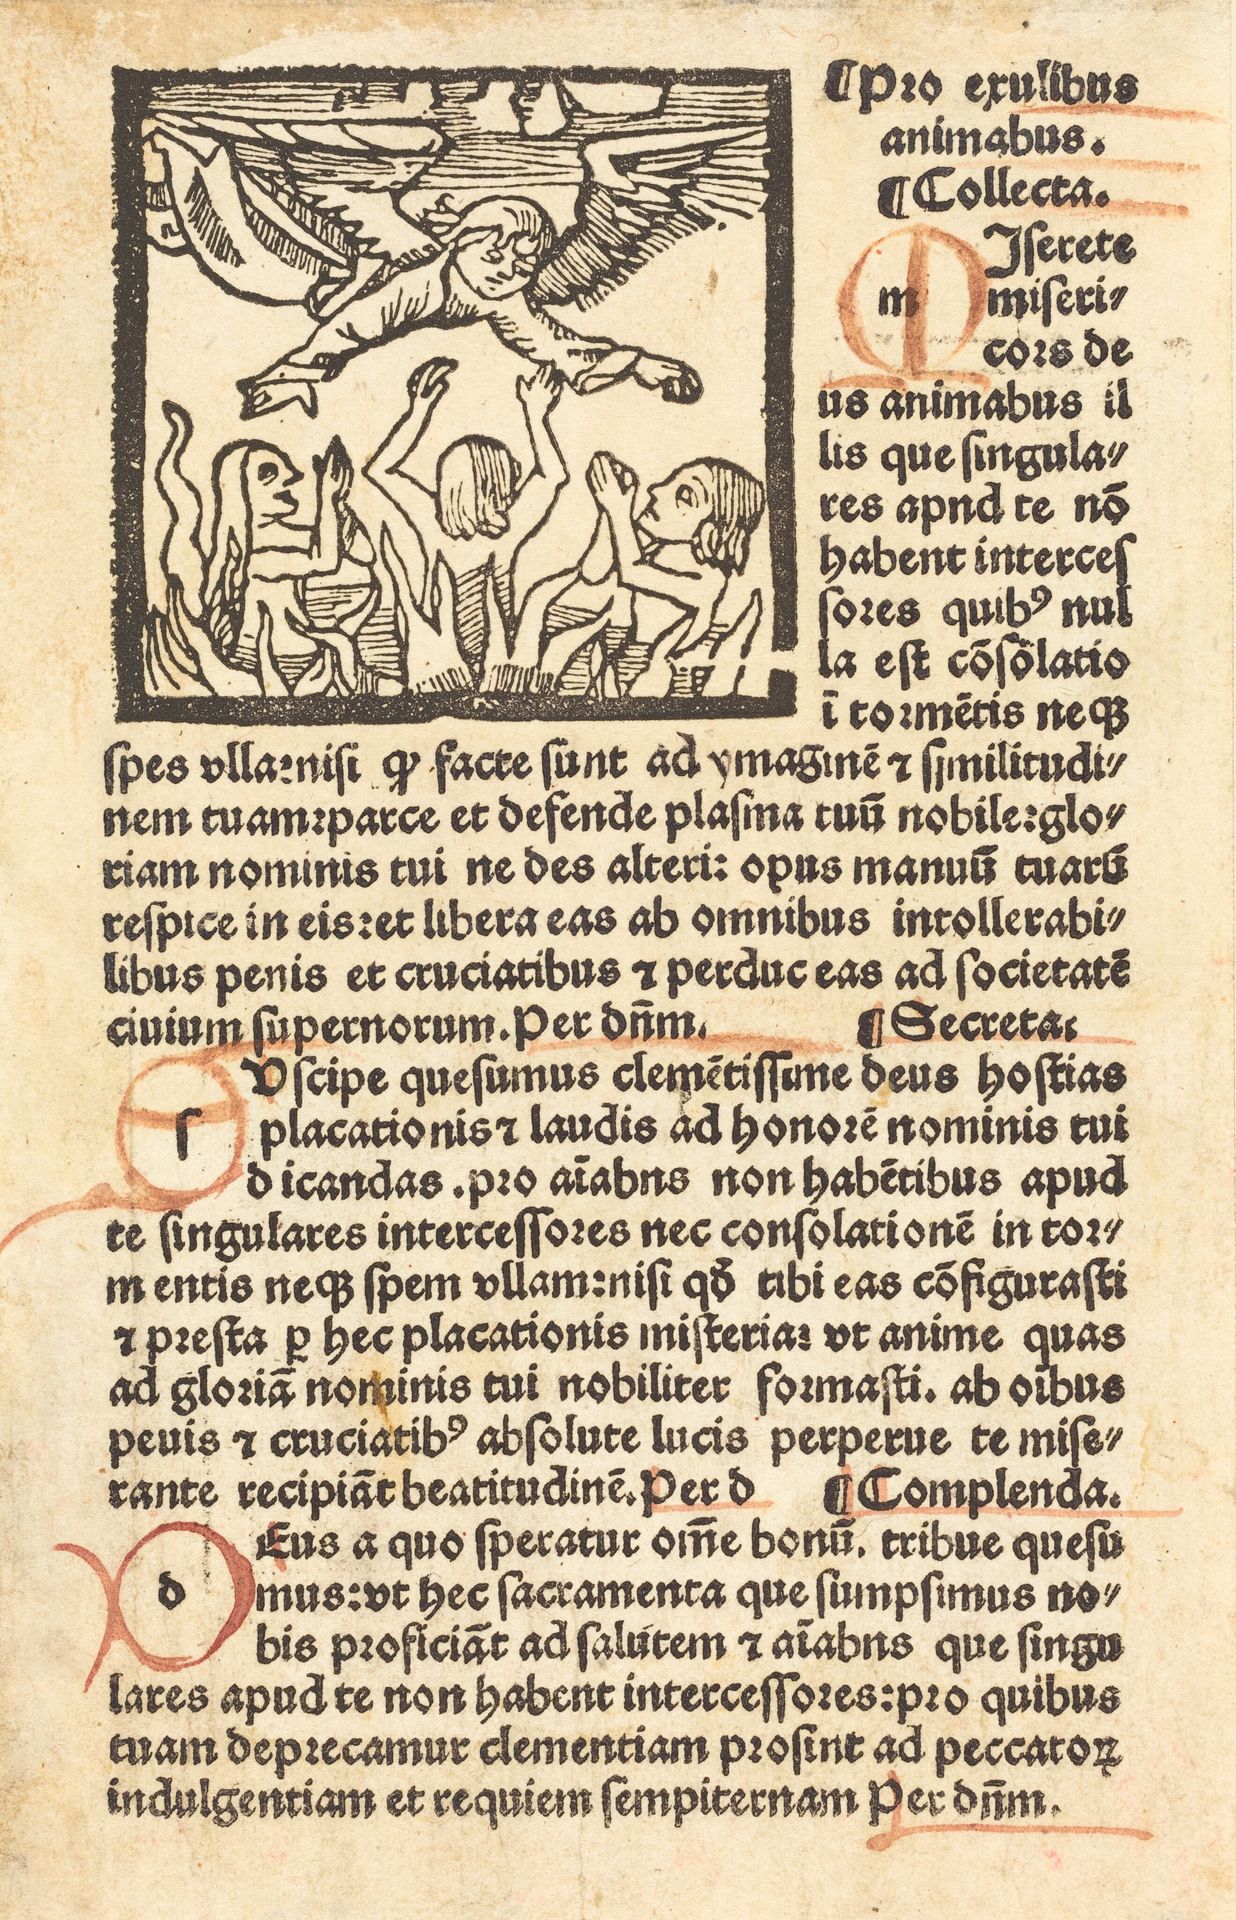 ¶Pro exulibus
animabus.
¶Collecta.
mIserere
miseri⸗
cors de
us animabus il
lis que singula⸗
res apnd te nō
habent interces
sores quibꝰ nul
la est cōsōlatio
ī tormētis neqꝫ
spes vlla:nisi ꝙ facte sunt ad ymaginē ⁊ sjmilitudi⸗
nem tuam:parce et defende plasma tuū nobile:glo⸗
riam nominis tui ne des alteri: opus manuū tuarū
respice in eis:et libera eas ab omnibus intollerabi⸗
libus penis et cruciatibus ⁊ perduc eas ad societatē
ciuium supernorum.Per dn̄m. ¶Secreta.
sVscipe quesumus clemētissime deus hostias
placationis⁊ laudis ad honorē nominis tui
d icandas .pro aīabns non habētibus apud
te singulares intercessores nec consolationē in tor⸗
m entis neqꝫ spem vllam:nisi qd̄ tibi eas cōfigurasti
⁊ presta ꝑ hec placationis misteria: vt anime quas
ad gloriā nominis tui nobiliter formasti. ab oībus
peuis ⁊ cruciatibꝰ absolute lucis perperue te mise⸗
rante recipiāt beatitudinē.Per d ¶Complenda.
dEus a quo speratur om̄e bonū. tribue quesu
mus:vt hec sacramenta que sumpsimus no⸗
bis proficiāt ad salutem ⁊ aīabns que singu
lares apud te non habent intercessores:pro quibus
tuam deprecamur clementiam prosint ad peccatoꝝ
indulgentiam et requiem sempiternam Per dn̄m.